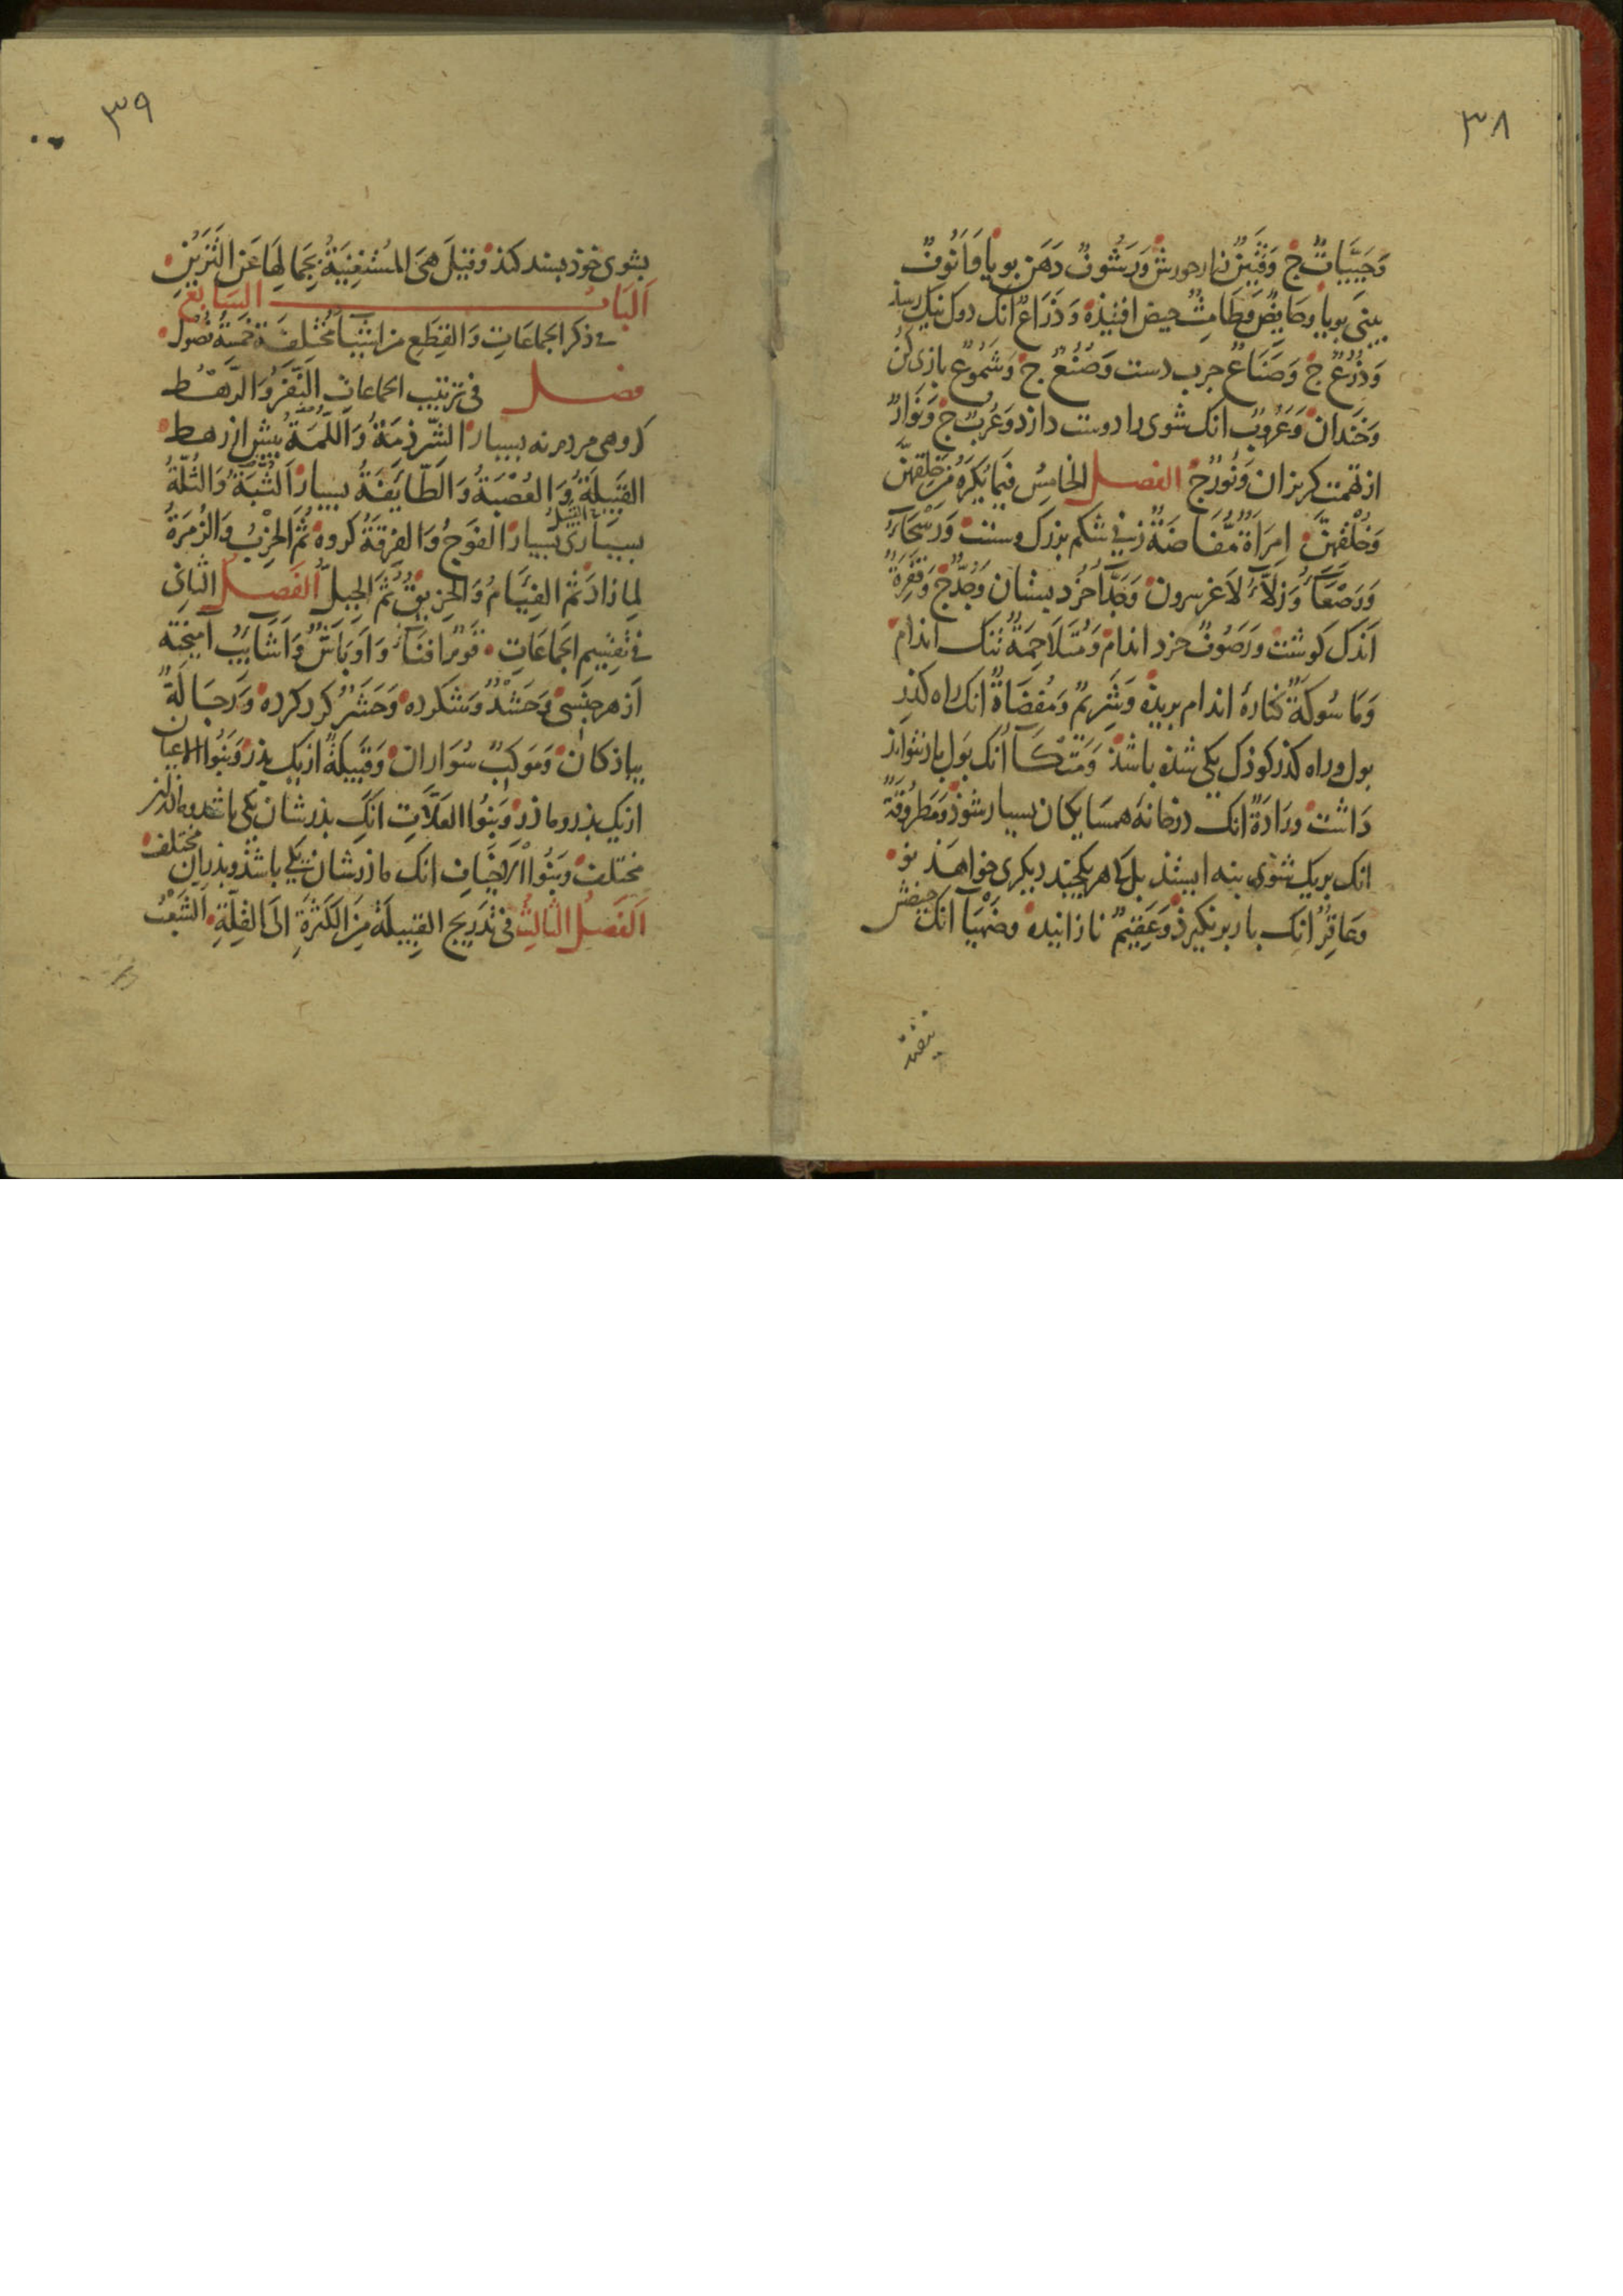 ٣٨
وَحَيِيَّاتٌ ج وَقَتِينٌ وَرَشُوفٌ دَهَن بويا وَاَنُوفٌ
بينى بويا وحَايِضٌ وَطَامِثٌ حيض افتيذه وَذَرَاعٌ انك دوك نيك ريسذ
وَذُرُعٌ ج وَصَنَاعٌ جرب دست وَصُنُعٌ ج وَشَمُوعٌ بازى كن
وَخندان وَعَرُوبٌ انك شوى را دوست دارد وَعُرُبٌ ج وَنَوَارٌ
از تهمت كريزان وَنُورٌ ج الفصل الخامِسُ فيمَا يُكرَهُ مِن خَلقِهنَّ
وَخُلُقِهِنَّ امرَاَةٌ مُفَاضَةٌ زنى شكم بزرك وسست وَرَسْحَاءُ
وَرَصْعَاءُ وَزَلَّاءُ لاغر سرون وَجَدَّاءُ خرد بستان وَجُدٌّ ج وَقَفِرَةٌ
اندك كوشت وَرَصُوفٌ خرد اندام وَمُتَلَاحِمَةٌ تنك اندام
وَمَاسُوكَةٌ كنارۀ اندام بريذه وَشَرِيمٌ وَمُفضَاةٌ انك راه كذر
بول وراه كذر كوذك يكى شذه باشذ وَمَتْكَاءُ انك بول باز نتواند
داشت ورَادَةٌ انك در خانۀ همسايكان بسيار شوذ وَمَطرُوفَةٌ
انك بريك شوى بنه ايستذ بل كا هر يكجند ديكرى خواهذ نو
وعَاقِرٌ انك بار برنكيرذ وَعَقِيمٌ نازاينده وضَهْيَاءُ انك حيضش
نيفتد
٣٩
بشوى خوذ بسند كند وقيلَ هىَ المُستَغنِيَةُ بجَمَالِهَا عَنِ التَّزَيُّنِ
اَلبَابُ السَّابعُ
فى ذكر الجماعَاتِ وَالقِطَعِ من اشيَاءَ مُختَلِفَة خَمسَةُ فصُول
فصل فى ترتيب الجماعات النَّفَرُ وَالرَّهْطُ
كروهى مردم نه بسيار الشّرذمَةُ وَاللُّمَةُ بيش از رهط
القَبِيلَةُ وَالعُصْبَةُ وَالطَّايِفَةُ بسيار الثُّبَةُ وَالثُّلَّةُ
بسيارى بسيار الفَوجُ وَالفِرقَةُ كروه ثُمَّ الحِزبُ وَالزُّمرَةُ
لِمَا زادَ ثُمَّ الفِيَامُ وَالحَزِيقُ ثُمَّ الجِيلُ الفَصلُ الثانى
فى تقسِيمِ الجَمَاعَاتِ قَومٌ افنَاءُ وَاَوبَاشٌ وَاَشَايِبُ آميخته
اَز هر جنسى وَحَشْدٌ وَحَشَرٌ كرد كرده وَرَجَّالَةٌ
بياذكان وَمَوكِبٌ سُوَاران وَقَبِيلَةٌ از يك بذر وَبَنُوا الاعيان
از يك بذر وماذر وَبَنُوا العَلَّاتِ انك بذرشان يكى باشد وماذران
مختلف وبَنُوا الاخيَافِ انك ماذرشان يكى باشذ وبذران مختلف
اَلفَصلُ الثَّالِثُ فى تدريج القبيلَة مِنَ الكَثرَةِ الىَ القِلَّةِ الشَّعْبُ